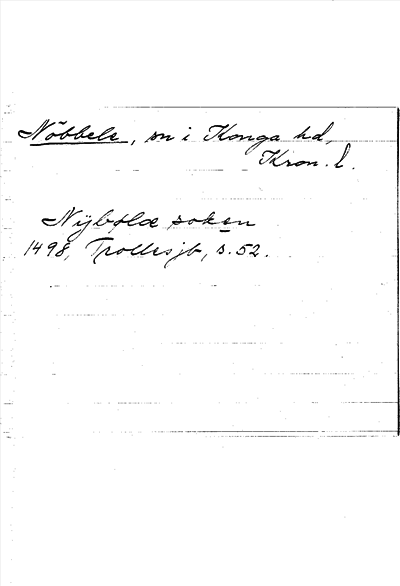 Nöbbele, sn i Konga hd,
Kron. l.
Nijbølæ soken
1498, Trollesjb, s. 52.